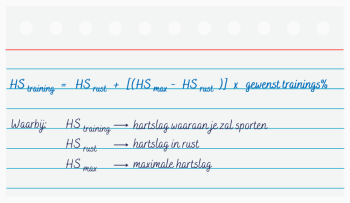 HS training = HS rust + [(HS max - HS rust)] x gewenst trainings%
Waarbij: HS training → hartslag waaraan je zal sporten
HS rust → hartslag in rust
HS max → maximale hartslag